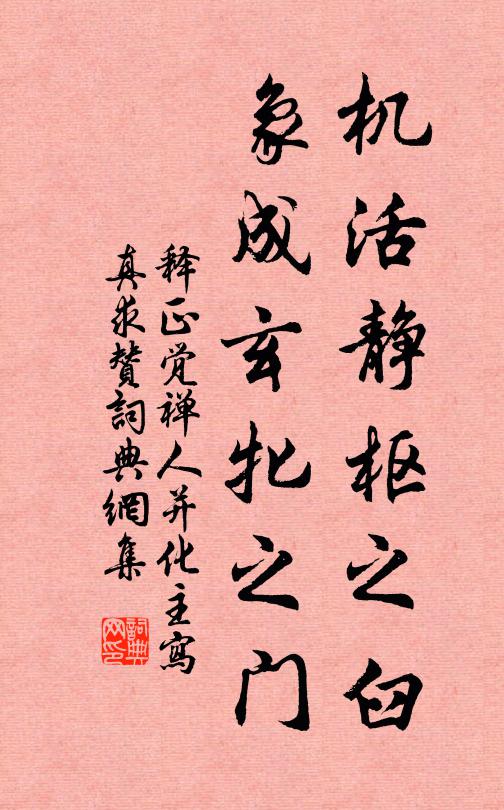 机活静枢之臼
象成玄牝之门
释正觉禅人并化主寫
真求赞詞典網集
詞典
网印